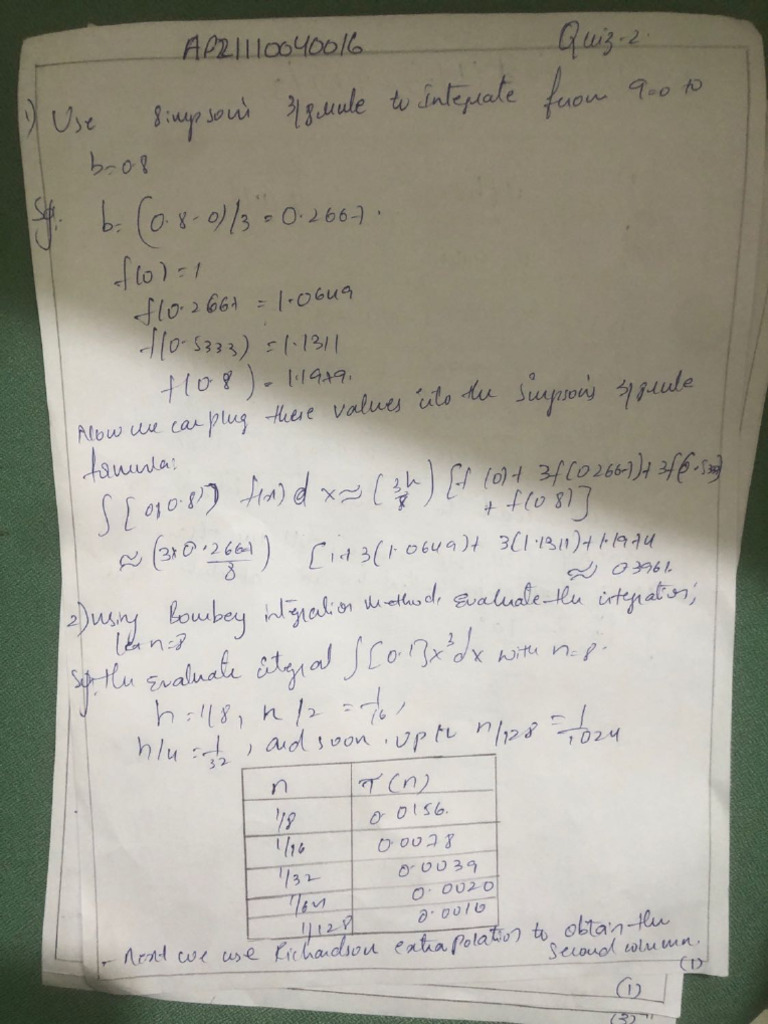 AP21110040016
Quiz-2.
1) Use Simpson's 3/8 rule to integrate from a=0 to
b=0.8
Sol:. b= (0.8-0)/3 = 0.2667.
f(0) = 1
f(0.2667 = 1.0649
f(0.5333) = 1.1311
f(0.8) = 1.1979.
Now we can plug these values into the Simpson's 3/8 rule
formula:
∫[0,0.8] f(x) d x ≈ (3h/8) [f(0)+ 3f(0.2667)+3f(0.533)
+ f(0.8)]
≈ (3x0.2667/8) [1+3(1.0649)+ 3(1.1311)+1.1974
≈ 0.3961.
2) using Bombey integration method, evaluate the integration;
n=8
Sol:. the evaluate integral ∫[0.1]x³dx with n=8.
h=1/8, h/2 = 1/16,
h/4 = 1/32, and soon. up to h/128 = 1/1024
n T(n)
1/8 0.0156.
1/16 0.0078
1/32 0.0039
1/64 0.0020
1/128 0.0010
- Next we use Richardson extrapolation to obtain the
second column.
(1)
(1)
(3)